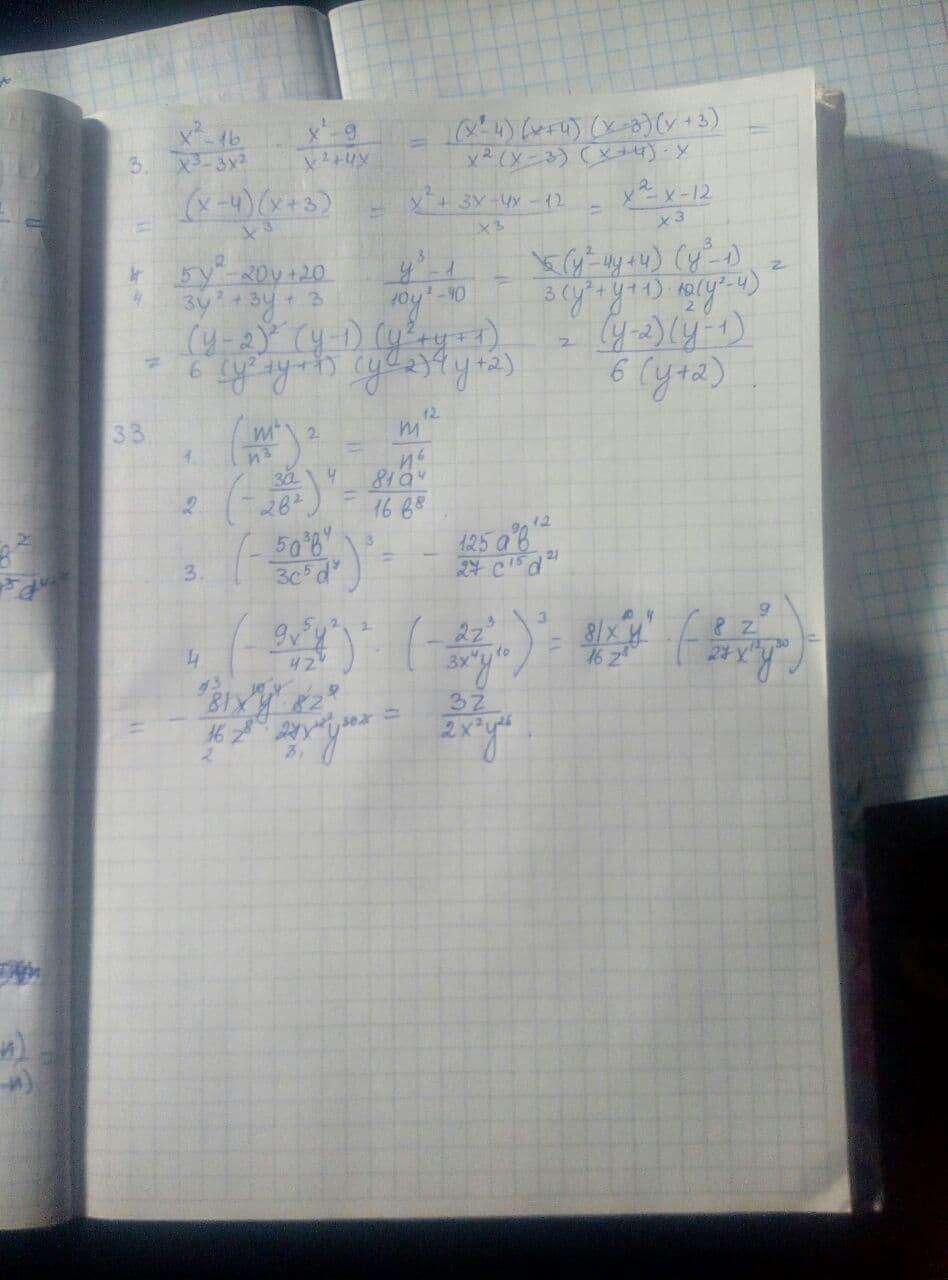 3. (x²-16)/(x³-3x²) · (x²-9)/(x²+4x) = ((x-4)(x+4)(x-3)(x+3))/(x²(x-3)(x+4)·x) =
= ((x-4)(x+3))/x³ = (x²+3x-4x-12)/x³ = (x²-x-12)/x³
4 (5y²-20y+20)/(3y²+3y+3) (y³-1)/(10y²-40) = (5(y²-4y+4)(y³-1))/(3(y²+y+1)·10(y²-4)) =
= ((y-2)²(y-1)(y²+y+1))/(6(y²+y+1)(y-2)(y+2)) = ((y-2)(y-1))/(6(y+2)).
33.
1. (m⁶/n³)² = m¹²/n⁶
2 (-3a/2b²)⁴ = 81a⁴/16b⁸.
3. (-5a³b⁴/3c⁵d⁷)³ = -125a⁹b¹²/27c¹⁵d²¹
4. (-9x⁵y²/4z⁴)² · (-2z³/3x⁴y¹⁰)³ = 81x¹⁰y⁴/16z⁸ · (-8z⁹/27x¹²y³⁰) =
= -(81x¹⁰y⁴·8z⁹)/(16z⁸·27x¹²y³⁰) = 3z/2x²y²⁶.